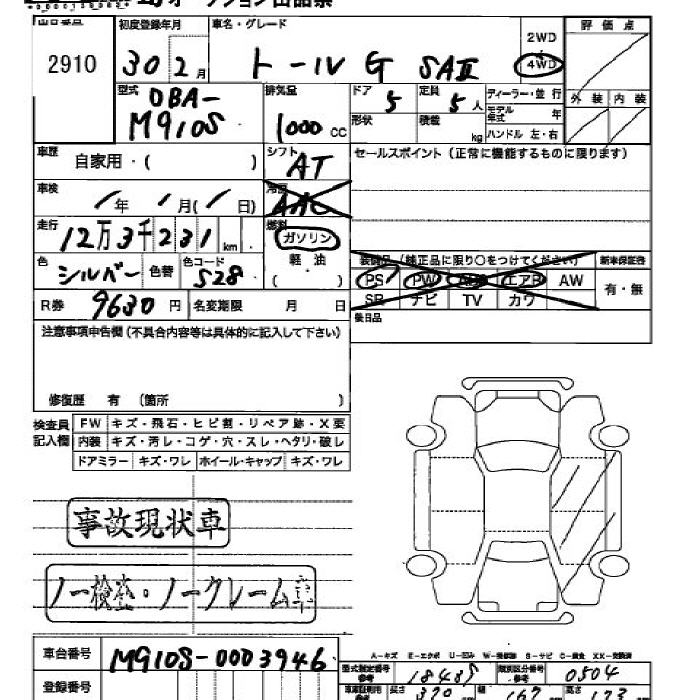 オークション出品票
出品番号 初度登録年月 車名・グレード 2WD 評価点
2910 30 2月 トール G SAⅡ 4WD
型式 DBA- 排気量 ドア 5 定員 5人 ディーラー・並行 外装 内装
M910S 1000CC 形状 積載 kg モデル年式 年
ハンドル 左・右
車歴 自家用・( ) シフト AT セールスポイント(正常に機能するものに限ります)
車検 /年 /月(/日) 冷房 AAC
走行 12万3千231km 燃料 ガソリン
軽油
( )
装備品(純正品に限り○をつけてください) 新車保証書
色 シルバー 色替 色コード S28 PS PW エアB AW 有・無
SR ナビ TV カワ
R券 9630円 名変期限 月 日 後日品
注意事項申告欄(不具合内容等は具体的に記入して下さい)
修復歴 有 (箇所 )
検査員 FW キズ・飛石・ヒビ割・リペア跡・X要
記入欄 内装 キズ・汚レ・コゲ・穴・スレ・ヘタリ・破レ
ドアミラー キズ・ワレ ホイール・キャップ キズ・ワレ
事故現状車
ノー検査・ノークレーム車
A-キズ E-エクボ U-凹み W-補修跡 S-サビ C-腐食 XX-交換済
車台番号 M910S-0003946 型式指定番号 参考 類別区分番号 参考 0504
登録番号 長さ 370 幅 167 高さ 173